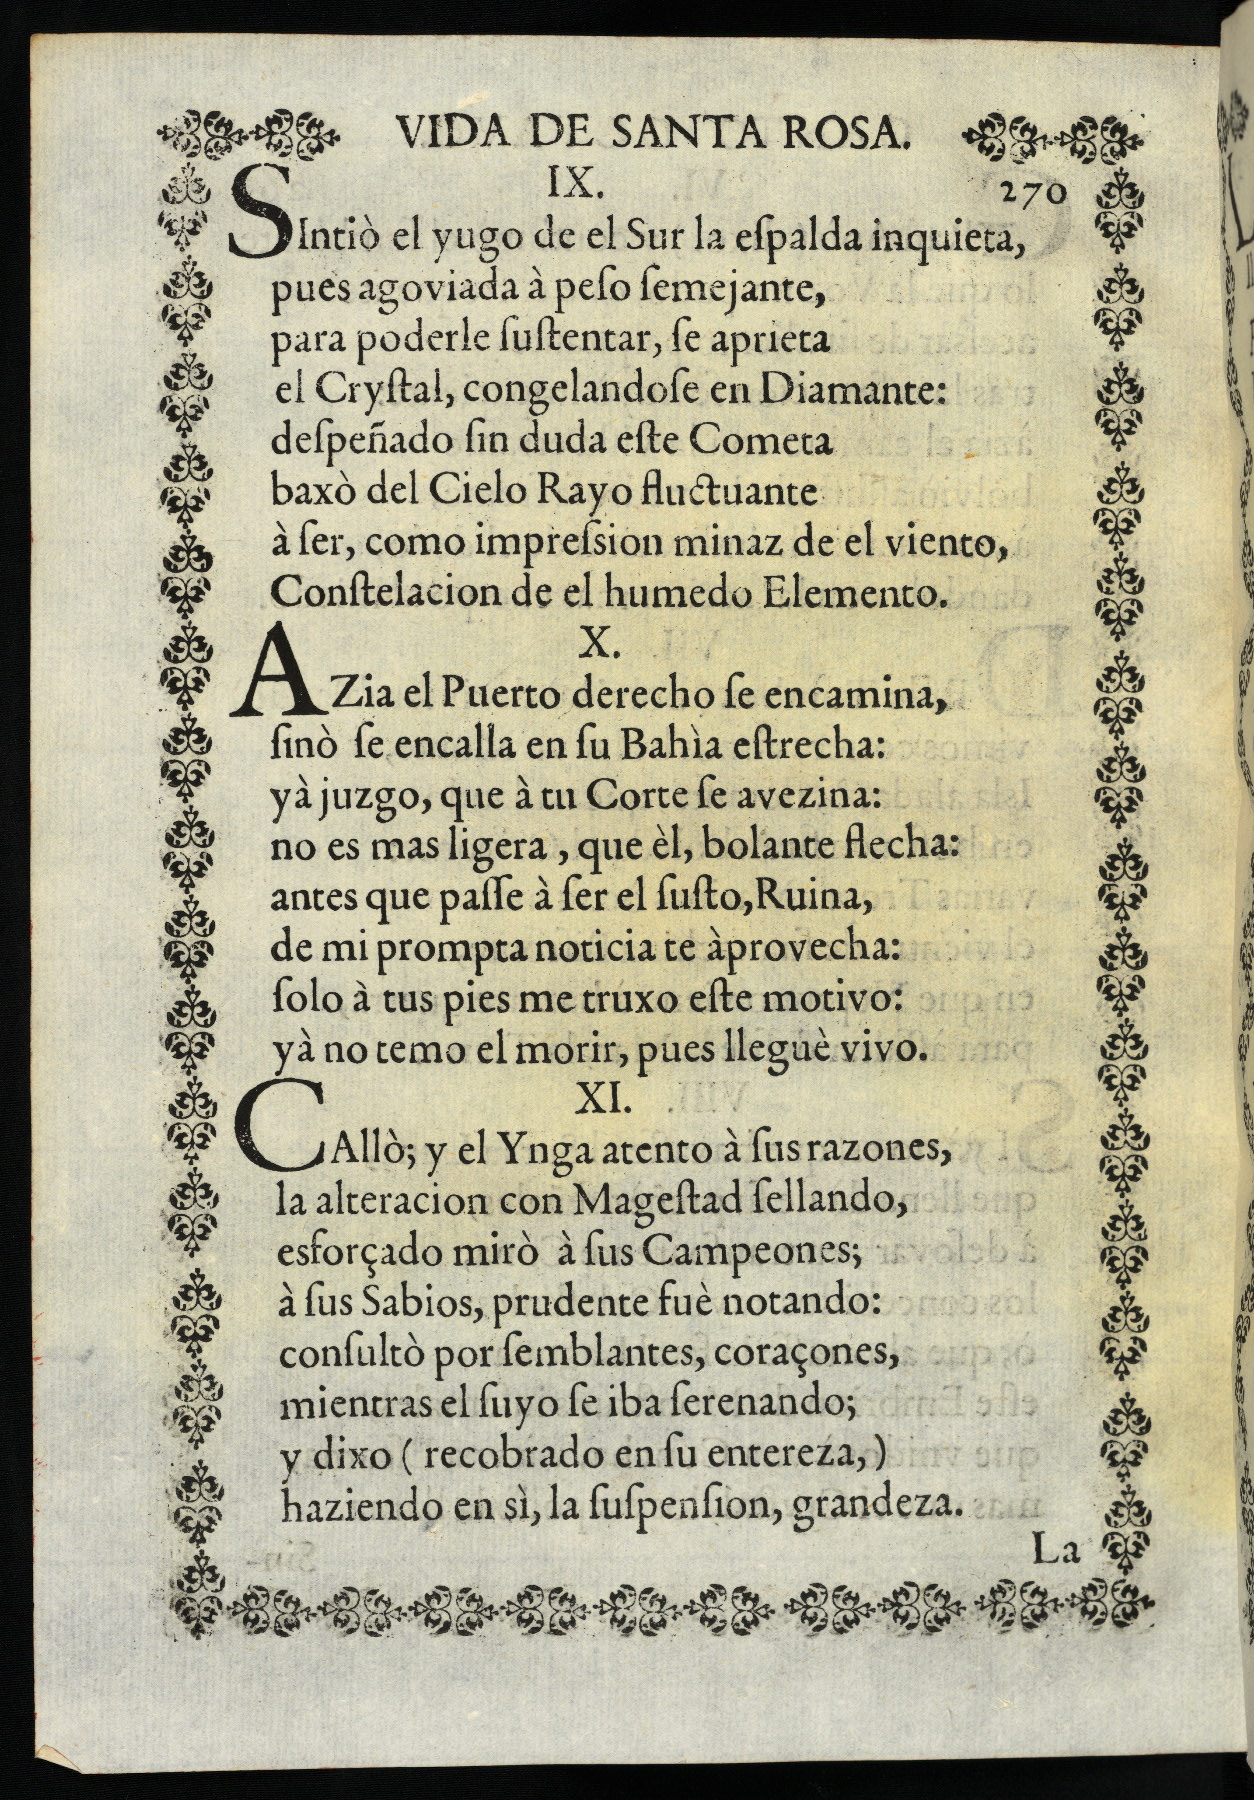 VIDA DE SANTA ROSA.
IX.
270
SIntiò el yugo de el Sur la eſpalda inquieta,
pues agoviada à peſo ſemejante,
para poderle ſuſtentar, ſe aprieta
el Cryſtal, congelandoſe en Diamante:
deſpeñado ſin duda eſte Cometa
baxò del Cielo Rayo fluctuante
à ſer, como impreſsion minaz de el viento,
Conſtelacion de el humedo Elemento.
X.
AZia el Puerto derecho ſe encamina,
ſinò ſe encalla en ſu Bahìa eſtrecha:
yà juzgo, que à tu Corte ſe avezina:
no es mas ligera, que èl, bolante flecha:
antes que paſſe à ſer el ſuſto, Ruina,
de mi prompta noticia te àprovecha:
ſolo à tus pies me truxo eſte motivo:
yà no temo el morir, pues lleguè vivo.
XI.
CAllò; y el Ynga atento à ſus razones,
la alteracion con Mageſtad ſellando,
esforçado mirò à ſus Campeones;
à ſus Sabios, prudente fuè notando:
conſultò por ſemblantes, coraçones,
mientras el ſuyo ſe iba ſerenando;
y dixo ( recobrado en ſu entereza, )
haziendo en sì, la ſuſpenſion, grandeza.
La